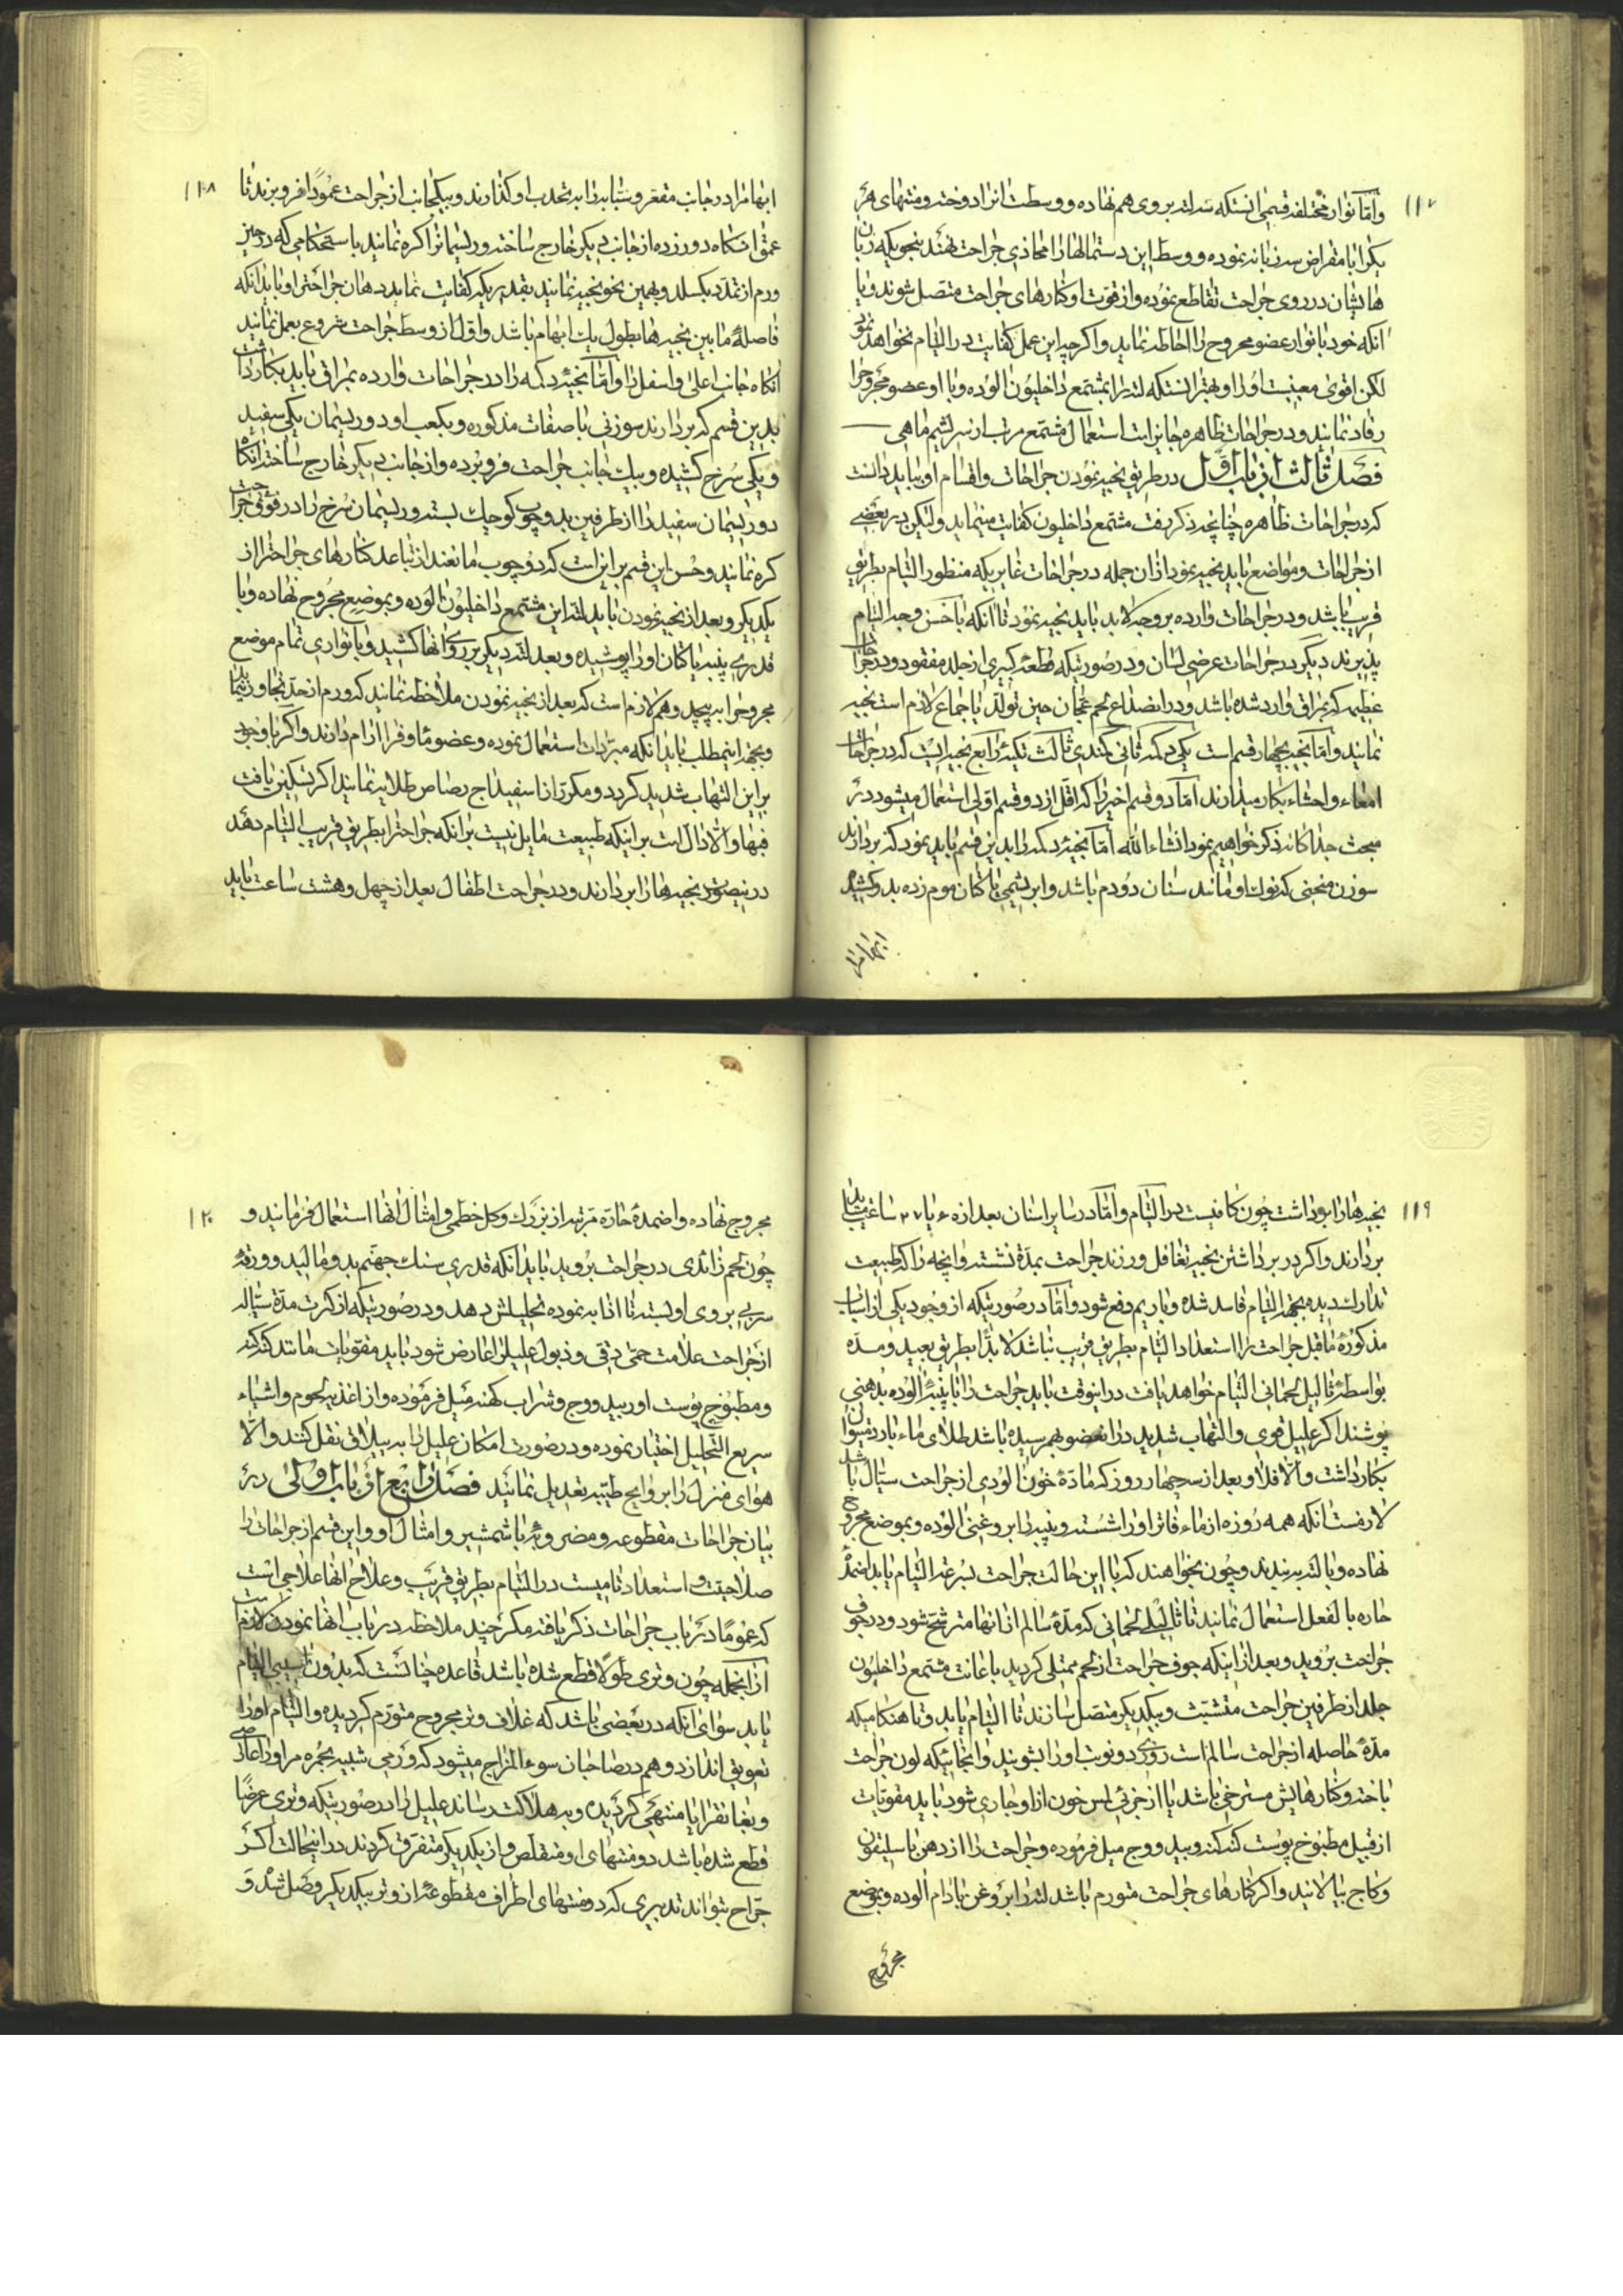 ۱۱۷
وامّا نوار مختلفه قسمی انستکه سه لته بروی هم نهاده و وسطش انرا دوخته و منتهای هر
یکرا با مقراض سه زبانه نموده و وسط این دستمالها را محاذی جراحت نهند بنحویکه زبان
هایشان در روی جراحت تقاطع نموده و از قوت او کنارهای جراحت متصل شوند و یا
انکه خود با نوار عضو مجروح را احاطه نماید و اکرچه این عمل کفایت در التیام نخواهد نمود
لکن اقوی معینست او را و بهتر انستکه لته را بمشتمع داخلیون الوده و با او عضو مجروحرا
رفاده نمایند و در جراحات ظاهره جایز است استعمال مشتمع مرتب از سریشم ماهی
فصل ثالث از باب اوّل در طریق بخیه نمودن جراحات و اقسام او بباید دانست
که در جراحات ظاهره چنانچه ذکر رفت مشتمع داخلیون کفایت مینماید ولیکن در بعضی
از جراحات و مواضع باید بخیه نمود از ان جمله در جراحات غایریکه منظور التیام بطریق
قریب باشد و در جراحات وارده بر وجه لابد باید بخیه نمود تا انکه باحسن وجه التیام
پذیرند دیکر در جراحات عرضی لسان و در صورتیکه قطعهٔ کبیری از جلد مفقود و در جراحات
عظیمه که بمراق وارد شده باشد و در انصداع لحم عجان حین تولد باجماع لازم است بخیه
نمایند و امّا بخیه بچهار قسم است یکی دکمه ثانی کندی ثالث تکیه رابع بخیه ایست که در جراحات
امعاء و احشاء بکار میدارند امّا دو قسم اخیر را که اقل از دو قسم اولی استعمال میشود در
مبحث جداکانه ذکر خواهیم نمود انشاء الله امّا بخیهٔ دکمه را بدین قسم باید نمود که بردارند
سوزن منحنی که نوک او مانند سنان دو دم باشد و ابریشمی یا کتان موم زده بدو کشیده
ابهامرا
۱۱۸
ابهامرا در جانب مقعر و سبّابه را به محدب او کذارند و بیکجانب از جراحت عموداً فرو برند تا
عمق انکاه دور زده از جانب دیکر خارج ساخته و ریسمانرا کره نمایند باستحکامی که در حین
ورم از تمدّد بکسلد و بهمین نحو بخیه نمایند بقدریکه کفایت نماید دهان جراحترا و باید انکه
فاصلهٔ مابین بخیه ها بطول یک ابهام باشد و اول از وسط جراحت شروع بعمل نمایند
انکاه جانب اعلی و اسفل را و امّا بخیهٔ دکمه را در جراحات وارده بمراق باید بکار داشت
بدین قسم که بردارند سوزنی با صفات مذکوره و بکعب او دو ریسمان یکی سفید
و یکی سرخ کشیده و بیک جانب جراحت فرو برده و از جانب دیکر خارج ساخته انکاه
دو ریسمان سفید را از طرفین بدو چوب کوچک بسته و ریسمان سرخ را در فوق جراحت
کره نمایند و حسن این قسم بر این است که دو چوب مانعند از تباعد کنارهای جراحترا از
یکدیکر و بعد از بخیه نمودن باید لته این مشتمع داخلیون الوده و بموضع مجروح نهاده و با
قدری پنبه یا کتان او را پوشیده و بعد لته دیکر بر روی انها کشیده و با نواری تمام موضع
مجروحرا به پیچد و هم لازم است که بعد از بخیه نمودن ملاحظه نمایند که ورم از حدّ تجاوز ننماید
و بجهة اینمطلب باید انکه مبرّدات استعمال نموده و عضو مأوف را ارام دارند و اکر با وجود
بر این التهاب شدید کردد و مکرّر از اسفیداج رصاص طلایه نمایند اکر تسکین یافت
فبها والّا دال است بر اینکه طبیعت مایل نیست بر انکه جراحترا بطریق قریب التیام دهد
در اینصورت بخیه ها را بردارند و در جراحت اطفال بعد از چهل و هشت ساعت باید
۱۱۹
بخیه ها را برداشت چون کافیست در التیام و امّا در سایر اسنان بعد از ۶۰ یا ۷۲ ساعت باید
بردارند و اکر در برداشتن بخیه تغافل ورزند جراحت بمدّة نشسته و انچه را که طبیعت
تدارک دیده بجهة التیام فاسد شده و با ریم دفع شود و امّا در صورتیکه از وجود یکی از اسباب
مذکورهٔ ماقبل جراحت را استعداد التیام بطریق قریب نباشد لابدّاً بطریق بعید و مدّه
بواسطهٔ ثالیل لحمانی التیام خواهد یافت در اینوقت باید جراحت را با پنبهٔ الوده بدهنی
پوشند اکر علیل قوی و التهاب شدید در انعضو بهم رسیده باشد طلای ماء بارد میتوان
بکار داشت والّا فلا و بعد از سه چهار روز که مادّهٔ خون الودی از جراحت سیّال باشد
لازمست انکه همه روزه از ماء فاتر او را شسته و پنبه را بروغنی الوده و بموضع مجروح
نهاده و با لته ببندند و چون بخواهند که با این حالت جراحت بسرعة التیام یابد اضمدهٔ
حاره بالفعل استعمال نمایند تا ثالیل لحمانی که مدّهٔ سالم از انها مترشح شود و در جوف
جراحت بروید و بعد از اینکه جوف جراحت از لحم ممتلی کردید باعانت مشتمع داخلیون
جلد از طرفین جراحت متشبّث و بیکدیکر متصل سازند تا التیام یابد و تا هنکامیکه
مدّهٔ حاصله از جراحت سالم است روزی دو نوبت او را بشویند و انجائیکه لون جراحت
باخته و کنارهایش مسترخی باشد یا از جزئی لمس خون از او جاری شود باید مقوّیات
از قبیل مطبوخ پوست کنه کنه و بید و وج میل فرموده و جراحت را از دهن باسلیقون
و کاج بیالایند و اکر کنارهای جراحت متورم باشد لته را بروغن بادام الوده و بموضع
مجروح
۱۲۰
مجروح نهاده و اضمدهٔ حارّه مرتبه از بزرک و کل خطمی و امثال انها استعمال فرمایند و
چون لحم زائدی در جراحت بروید باید انکه قدری سنک جهنم بدو مالید و ورقهٔ
سربی بر روی او بسته تا اذابه نموده تحلیلش دهد و در صورتیکه از کثرت مدّهٔ سیّاله
از جراحت علامت حمّی دقی و ذبول علیل را عارض شود باید مقوّیات مانند کنه کنه
و مطبوخ پوست او و بید و وج و شراب کهنه میل فرموده و از اغذیه لحوم و اشیاء
سریع التحلیل اختیار نموده و در صورت امکان علیل را به ییلاق نقل کنند والّا
هوای منزل را بروایح طیّبه تعدیل نمایند فصل رابع از باب اولی در
بیان جراحات مقطوعه و مضروبهٔ باشمشیر و امثال او و این قسم از جراحات را
صلاحیّت و استعداد تامیست در التیام بطریق قریب و علاج انها علاجی است
که عموماً در باب جراحات ذکر یافته مکر چند ملاحظه در باب انها نمودن لازم است
از انجمله چون وتری طولاً قطع شده باشد قاعده چنانست که بدون اسبیبی التیام
یابد سوای انکه در بعضی باشد که غلاف وتر مجروح متورّم کردیده و التیام او را
تعویق اندازد و هم در صاحبان سوء المزاج میشود که ورمی شبیه بجمره مر او را عارض
و بغانقرایا منتهی کردیده و به هلاکت رساند علیل را در صورتیکه وتری عرضاً
قطع شده باشد دو منتهای او متقلص و از یکدیکر متفرق کردند در اینحالت اکر
جرّاح بتواند تدبیری که دو منتهای اطراف مقطوعهٔ از وتر بیکدیکر وصل شد و